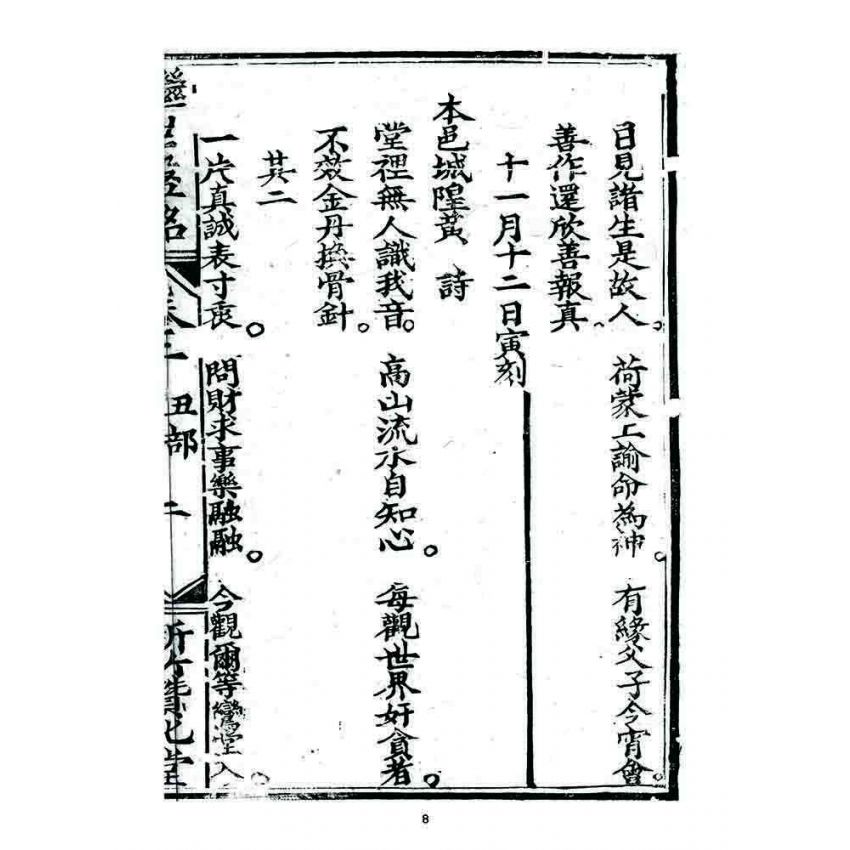 目見諸生是故人。荷蒙上諭命為神。有緣父子今宵會。
善作還欣善報真。
十一月十二日寅刻
本邑城隍黃 詩
堂裡無人識我音。高山流水自知心。每觀世界奸貪者。
不效金丹換骨針。
其二
一片真誠表寸衷。問財求事樂融融。今觀爾等鸞堂入。
卷三 丑部 二
8